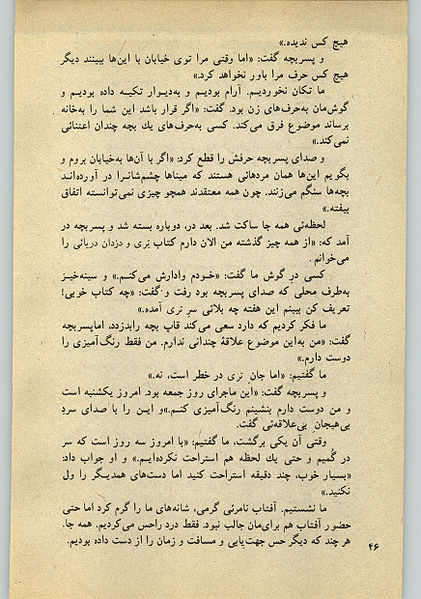 هیچ کس ندیده.»
و پسربچه گفت: «اما وقتی مرا توی خیابان با این‌ها ببینند دیگر
هیچ کس حرف مرا باور نخواهد کرد.»
ما تکان نخوردیم. آرام بودیم و به‌دیوار تکیه داده بودیم و
گوش‌مان به‌حرف‌های زن بود. گفت: «اگر قرار باشد این شما را به‌خانه
برساند موضوع فرق می‌کند. کسی به‌حرف‌های یك بچه چندان اعتنائی
نمی‌کند.»
و صدای پسربچه حرفش را قطع کرد: «اگر با آن‌ها به‌خیابان بروم و
بگویم این‌ها همان مردهائی هستند که میناها چشم‌شانـرا در آورده‌انـد
بچه‌ها سنگم می‌زنند. چون همه معتقدند همچو چیزی نمی‌توانسته اتفاق
بیفته.»
لحظه‌ئی همه جا ساکت شد. بعد در، دوباره بسته شد و پسربچه در
آمد که: «از همه چیز گذشته من الان دارم کتاب تِری و دزدان دریائی را
می‌خوانم.
کسی در گوش ما گفت: «خـودم وادارش می‌کنـم.» و سینه‌خیـز
به‌طرف محلی که صدای پسربچه بود رفت و گفت: «چه کتاب خوبی!
تعریف کن ببینم این هفته چه بلائی سر تری آمده.»
ما فکر کردیم که دارد سعی می‌کند قاپ بچه رابدزدد، اماپسربچه
گفت: «من به‌این موضوع علاقهٔ چندانی ندارم. من فقط رنگ‌آمیزی را
دوست دارم.»
ما گفتیم: «اما جان تری در خطر است، نه.»
و پسربچه گفت: «این ماجرای روز جمعه بود. امروز یکشنبه است
و من دوست دارم بنشینم رنگ‌آمیزی کنـم.»و ایـن را با صدای سردِ
بی‌هیجانِ بی‌علاقه‌ئی گفت.
وقتی آن یکی برگشت، ما گفتیم: «با امروز سه روز است که سر
در گُمیم و حتی یك لحظه هم استراحت نکرده‌ایـم.» و او جواب داد:
«بسیار خوب، چند دقیقه استراحت کنید اما دست‌های همدیـگر را ول
نکنید.»
ما نشستیم. آفتاب نامرئی گرمی، شانه‌های ما را گرم کرد اما حتی
حضور آفتاب هم برای‌مان جالب نبود. فقط درد راحس می‌کردیم. همه جا.
هر چند که دیگر حس جهت‌یابی و مسافت و زمان را از دست داده بودیم.
۴۶